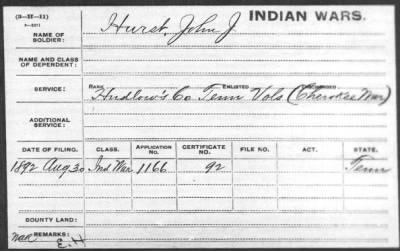 (3-II-11) INDIAN WARS.
NAME OF SOLDIER: Hurst, John J.
NAME AND CLASS OF DEPENDENT:
SERVICE: RANK ENLISTED
Hudlow's Co Tenn Vols (Cherokee War)
ADDITIONAL SERVICE:
DATE OF FILING. CLASS. APPLICATION No. CERTIFICATE NO. FILE NO. ACT. STATE.
1892 Aug 30 Ind War 1166 92 Tenn
COUNTY LAND:
REMARKS: